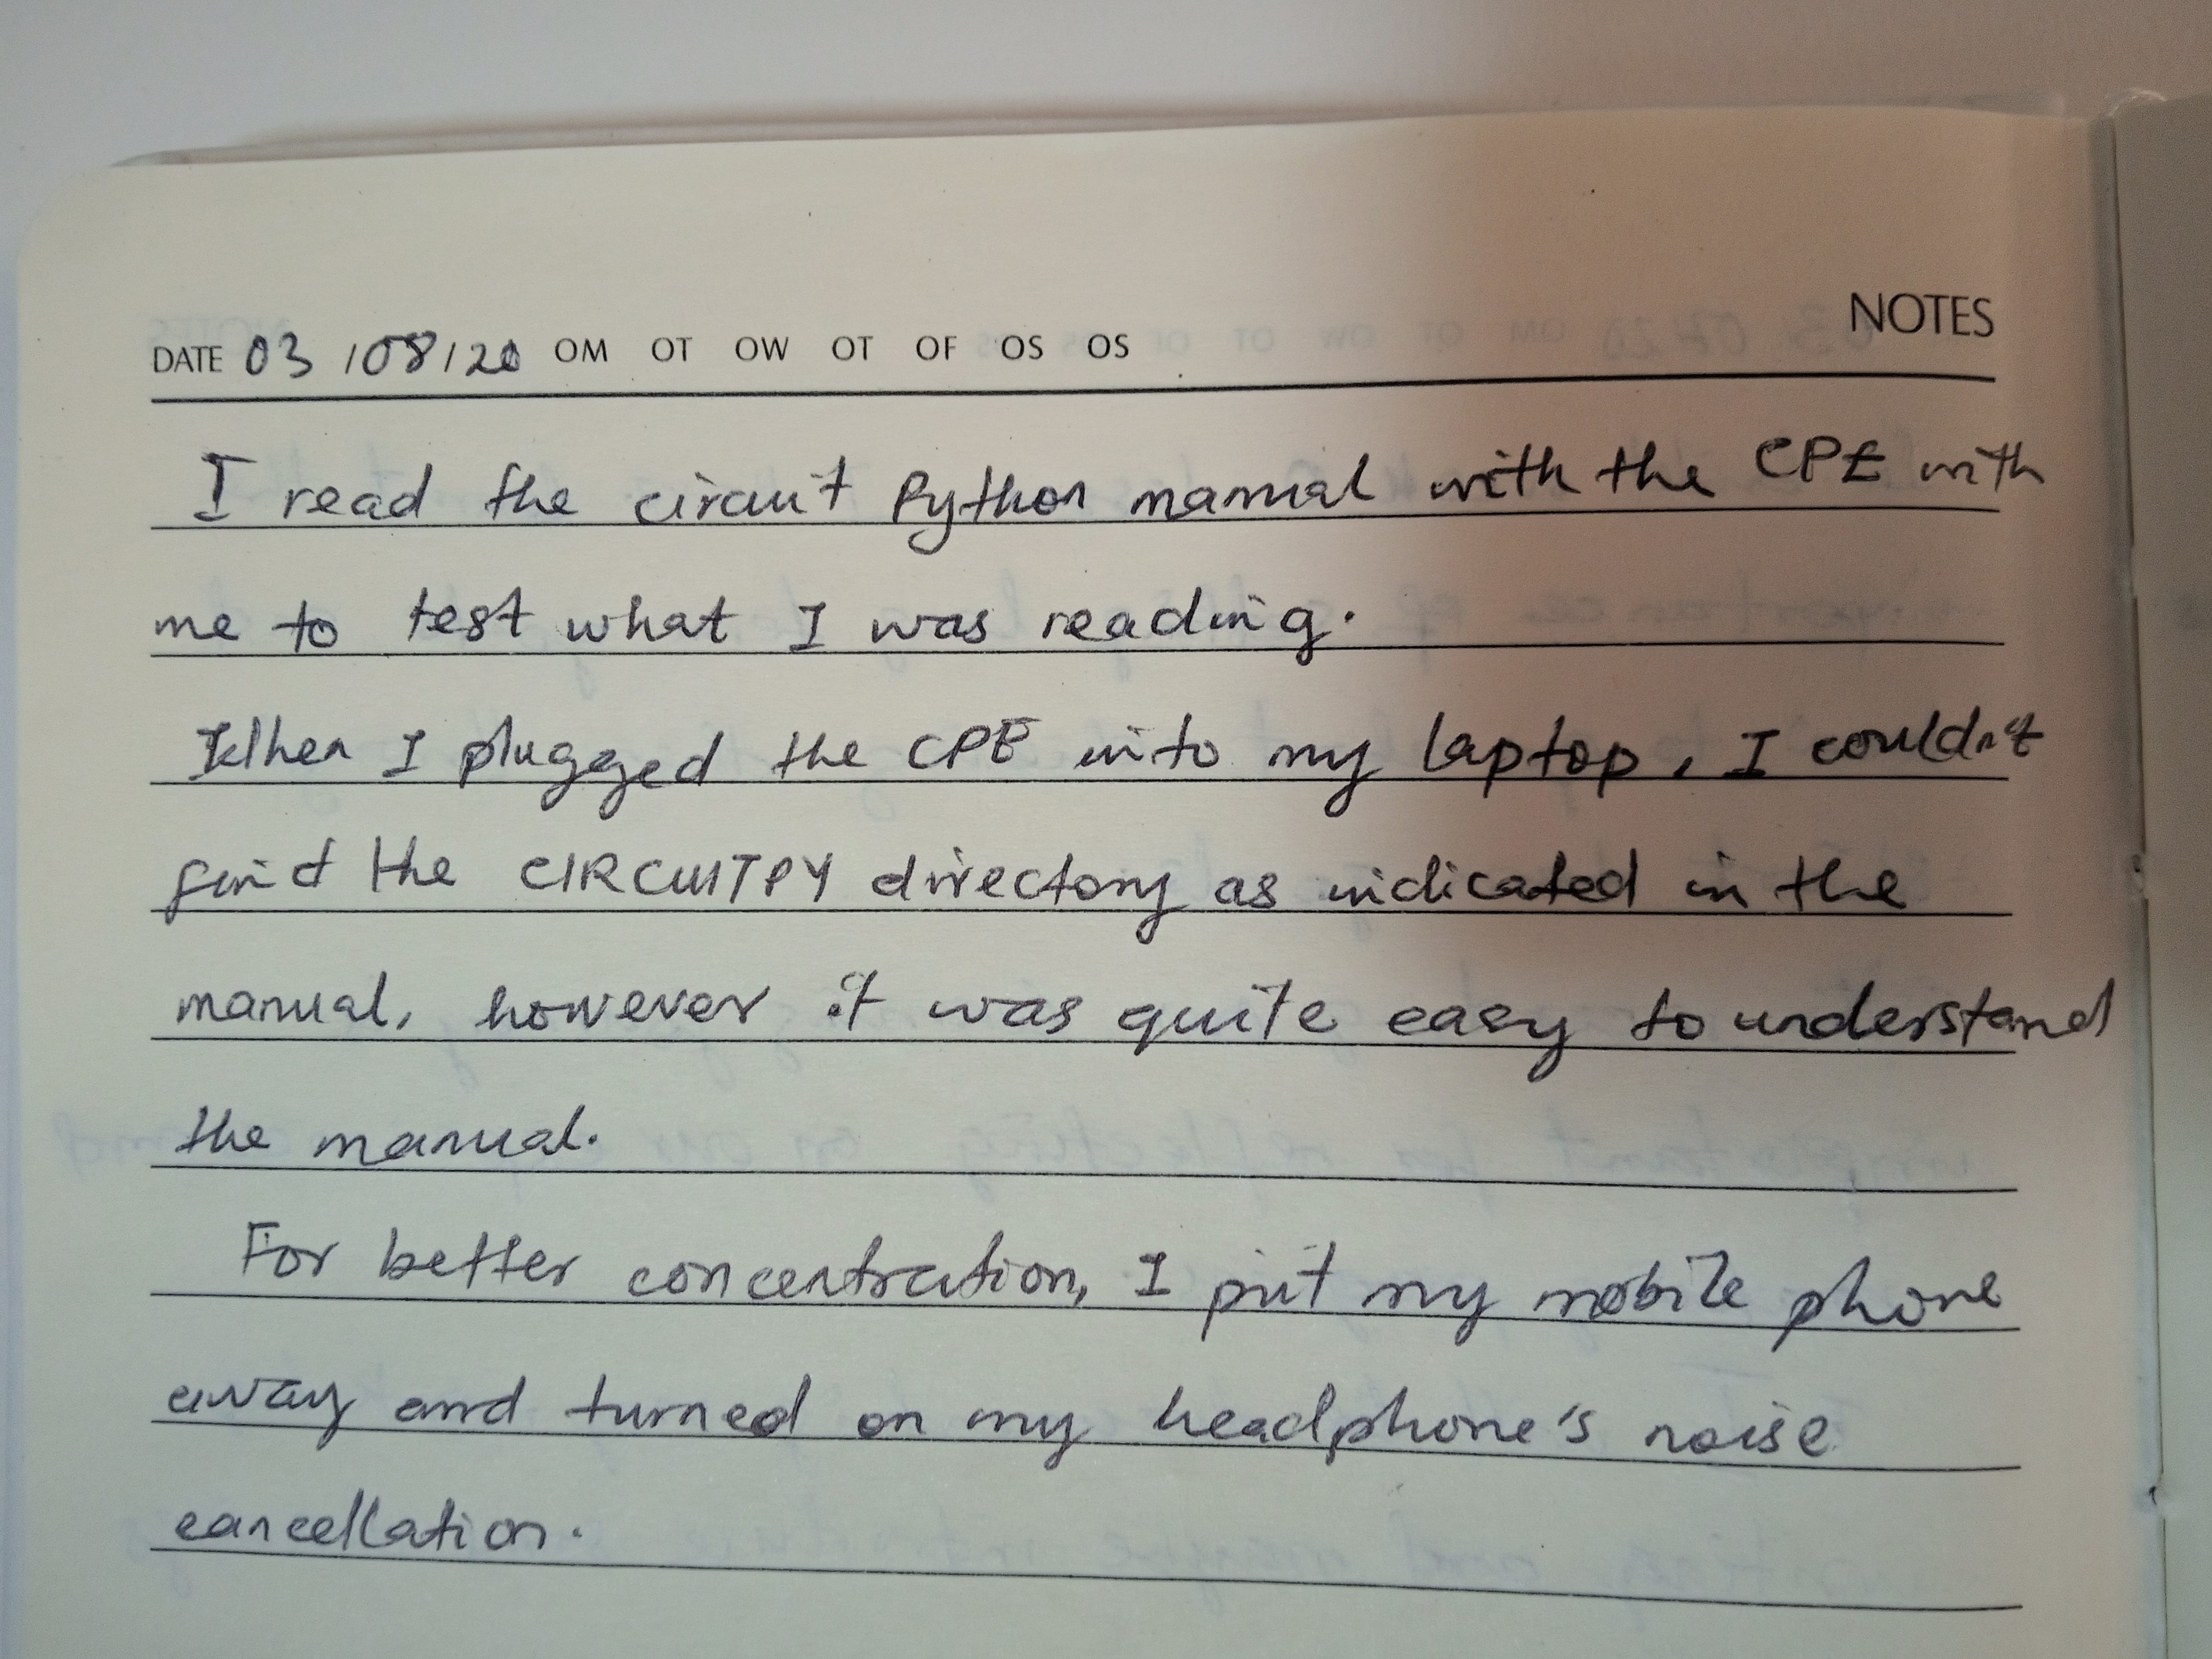 NOTES
DATE 03/08/20 OM OT OW OT OF OS OS
I read the circuit Python manual with the CPE with
me to test what I was reading.
When I plugged the CPE into my laptop, I couldn't
find the CIRCUITPY directory as indicated in the
manual, however it was quite easy to understand
the manual.
For better concentration, I put my mobile phone
away and turned on my headphone's noise
cancellation.